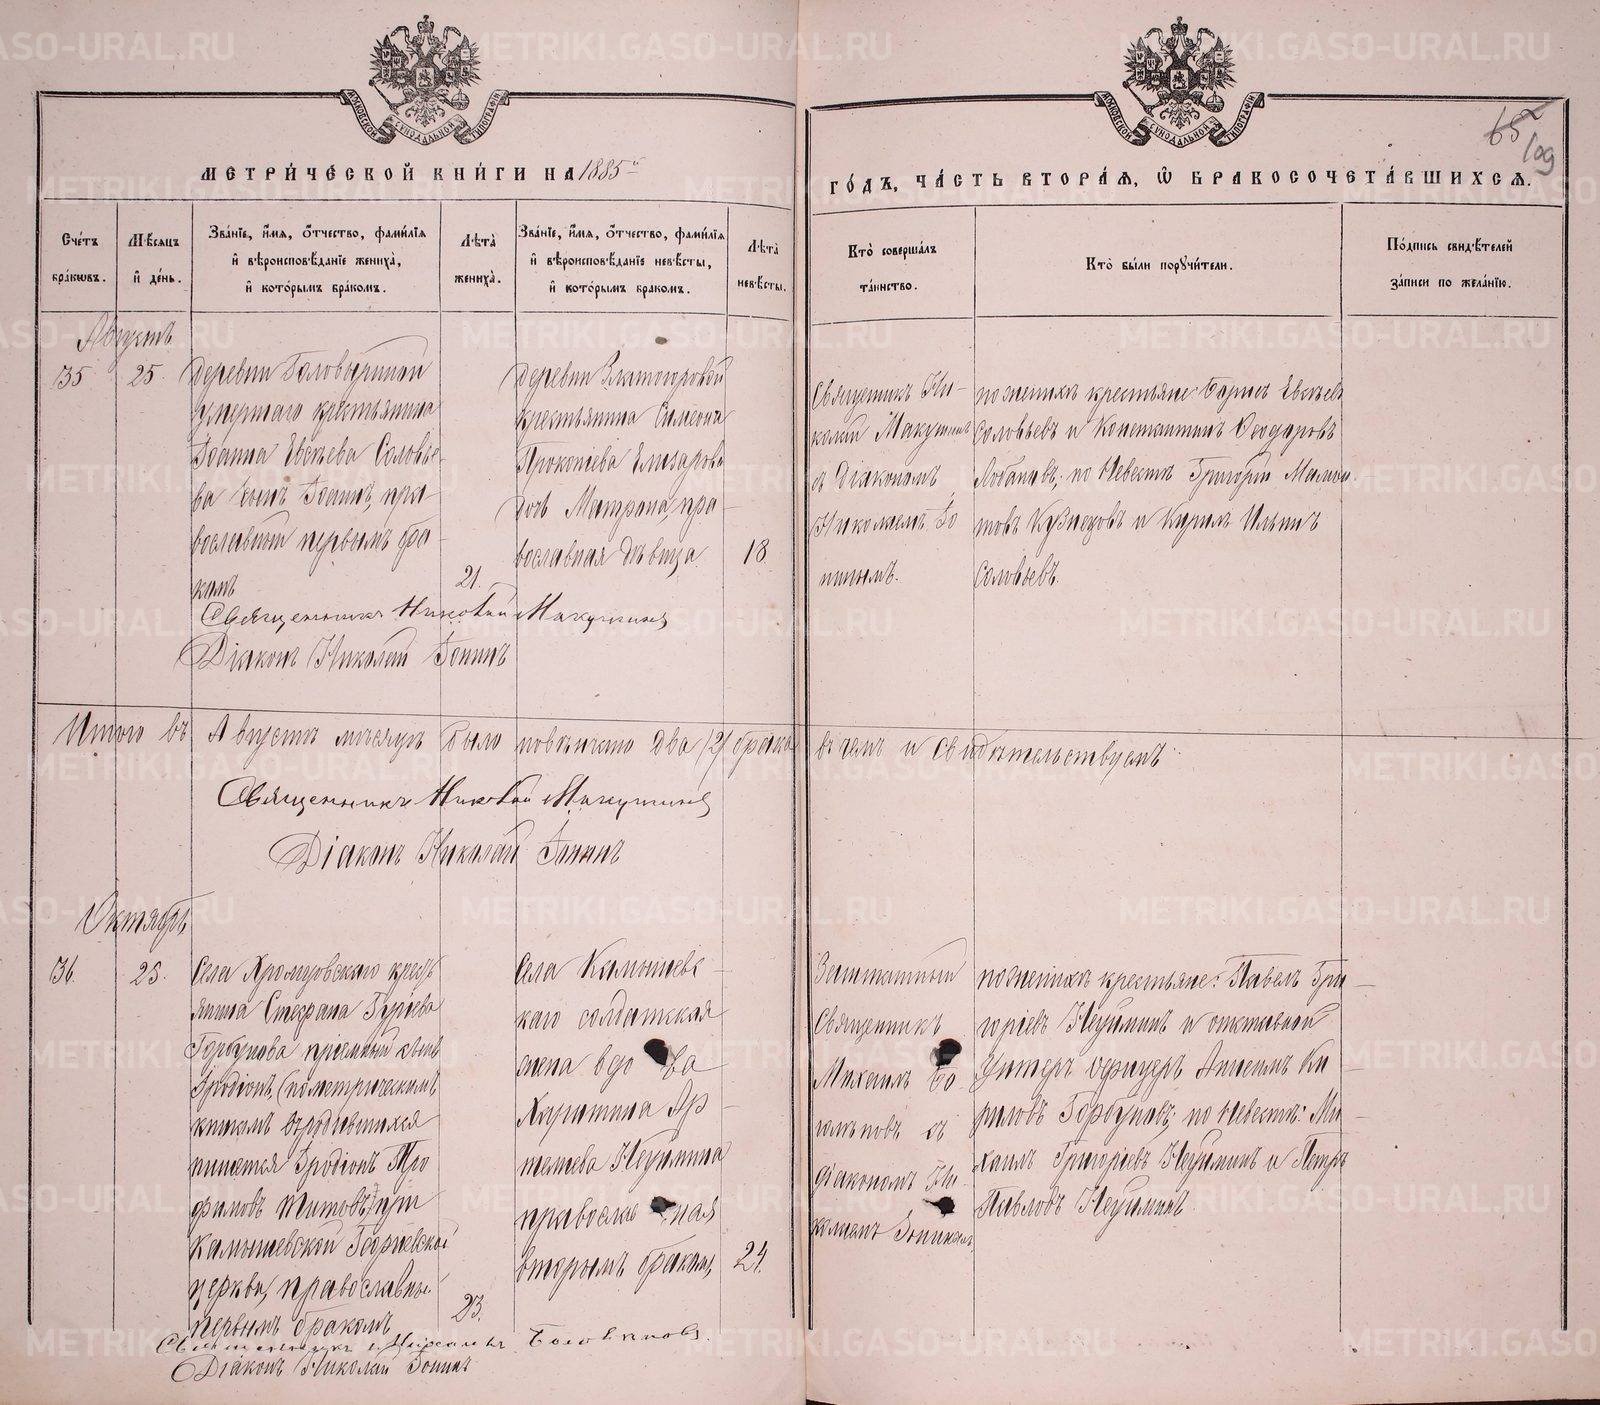 МОСКОВСКОЙ СѴНОДАЛЬНОЙ ТИПОГРАФІИ
МОСКОВСКОЙ СѴНОДАЛЬНОЙ ТИПОГРАФІИ
65
109
МЕТРИ́ЧЕСКОЙ КНИ́ГИ НА 1885й
ГО́ДЪ, ЧА́СТЬ ВТОРА́Ѧ, Ѽ БРАКОСОЧЕТА́ВШИХСѦ.
Сче́тъ
бра́ковъ.
Мѣ́сѧцъ
и҆ де́нь.
Зва́нїе, и҆́мѧ, ѻ҆́тчество, фами́лїѧ
и҆ вѣроисповѣ́данїе жениха̀,
и҆ кото́рымъ бра́комъ.
Лѣ́та
жениха̀.
Зва́нїе, и҆́мѧ, ѻ҆́тчество, фами́лїѧ
и҆ вѣроисповѣ́данїе невѣ́сты,
и҆ кото́рымъ бра́комъ.
Лѣ́та
невѣ́сты.
Кто̀ соверша́лъ
та́инство.
Кто̀ бы́ли порꙋчи́тели.
По́дпись свидѣ́телей
за́писи по жела́нїю.
Августъ
35
25.
деревни Головыриной
умершаго крестьянина
Іоанна Евсѣева Соловье-
ва сынъ Іоаннъ, пра-
вославный первымъ бра-
комъ
21.
деревни Златогоровой
крестьянина Симеона
Прокопьева Елизарова
дочь Матрона, пра-
вославная дѣвица
18
Священникъ Ни-
колай Макушинъ
съ Діакономъ
Николаемъ Іо
нинымъ.
по женихѣ крестьяне: Борисъ Евсѣевъ
Соловьевъ и Константинъ Ѳеодоровъ
Лобановъ; по невѣстѣ Григорій
Кузнецовъ и Кирилъ Ильинъ
Соловьевъ.
Священникъ Николай Макушинъ
Діаконъ Николай Іонинъ
Итого въ Августѣ мѣсяцѣ было повѣнчано два /2/ брака въ чемъ и свидѣтельствуемъ:
Священникъ Николай Макушинъ
Діаконъ Николай Іонинъ
Октябрь
36.
25.
Села Хромцовскаго кресть
янина Стефана Гурьева
Горбунова пріемный сынъ
Иродіонъ, (по метрическимъ
книгамъ въ родившихся
пишется Иродіонъ Тро
фимовъ Титовъ) при
Камышевской Георгіевской
церкви, православный
первымъ бракомъ
23.
Села Камышевс-
каго солдатская
жена вдова
Харитина Ар-
темьева Неуймина
православная
вторымъ бракомъ,
24.
Заштатный
Священникъ
Михаилъ Бо-
голѣповъ съ
діакономъ Ни-
колаемъ Іонинымъ
по женихѣ крестьяне: Павелъ Гри-
горіевъ Неуйминъ и отставной
Унтеръ Офицеръ Анисимъ Ки
риловъ Горбуновъ; по невѣстѣ: Ми-
хаилъ Григоріевъ Неуйминъ и Петръ
Павловъ Неуйминъ.
Священникъ Михаилъ Боголѣповъ.
Діаконъ Николай Іонинъ
METRIKI.GASO-URAL.RU